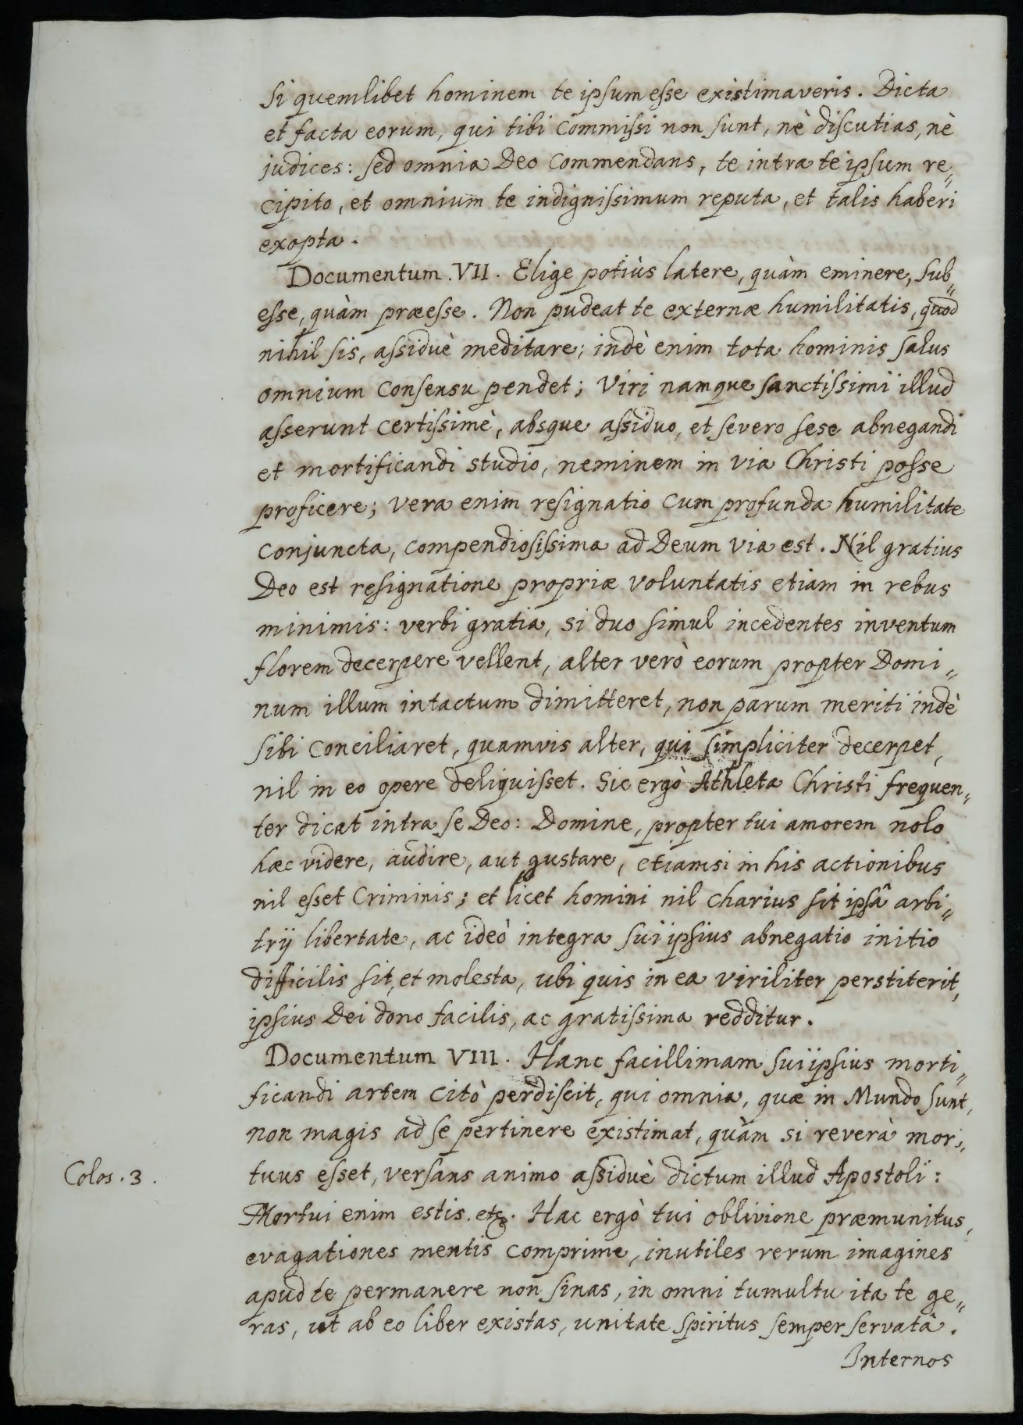 si quemlibet hominem te ipsum esse existimaveris. Dicta
et facta eorum, qui tibi commissi non sunt, nè discutias, nè
judices: sed omnia Deo commendans, te intra te ipsum re„
cipito, et omnium te indignissimum reputa, et talis haberi
exopta.
Documentum .VII. Elige potiùs latere, quàm eminere, sub„
esse, quàm præesse. Non pudeat te externæ humilitatis, quod
nihil sis, assiduè meditare; indè enim tota hominis salus
omnium consensu pendet; Viri namque sanctissimi illud
asserunt certissimè, absque assiduo, et severo sese abnegandi
et mortificandi studio, neminem in via Christi posse
proficere; vera enim resignatio cum profunda humilitate
conjuncta, compendiosissima ad Deum via est. Nil gratius
Deo est resignatione propriæ voluntatis etiam in rebus
minimis: verbi gratia, si duo simul incedentes inventum
florem decerpere vellent, alter verò eorum propter Domi„
num illum intactum dimitteret, non parum meriti indè
sibi conciliaret, quamvis alter, qui simpliciter decerpet,
nil in eo opere deliquisset. Sic ergò Athleta Christi frequen„
ter dicat intra se Deo: Domine, propter tui amorem nolo
hæc videre, audire, aut gustare, etiamsi in his actionibus
nil esset criminis; et licet homini nil charius sit ipsâ arbi„
trij libertate, ac ideò integra sui ipsius abnegatio initio
difficilis sit, et molesta, ubi quis in ea viriliter perstiterit,
ipsius Dei dono facilis, ac gratissima redditur.
Documentum VIII. Hanc facillimam sui ipsius morti„
ficandi artem citò perdiscit, qui omnia, quæ in Mundo sunt,
non magis ad se pertinere existimat, quàm si reverà mor„
tuus esset, versans animo assiduè dictum illud Apostoli:
Colos. 3.
Mortui enim estis. etc. Hac ergò tui oblivione præmunitus,
evagationes mentis comprime, inutiles rerum imagines
apud te permanere non sinas, in omni tumultu ita te ge„
ras, ut ab eo liber existas, unitate spiritus semper servatâ.
Internos